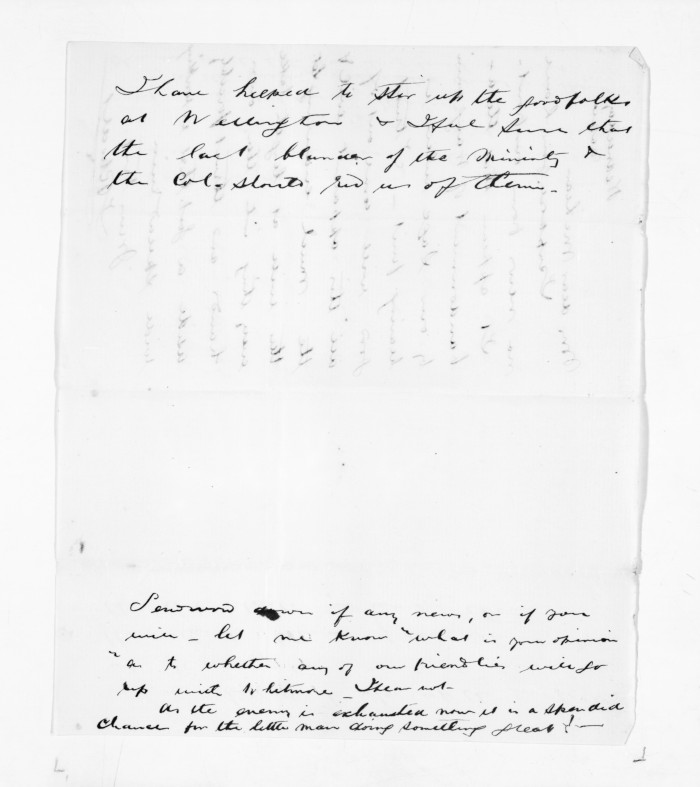 I have helped to stir up the good folks
at Wellington & I feel sure that
the last blunder of the Ministry &
the Col. should rid us of them.
Send word down if any news, or if you
will - let me know "what is your opinion
"as to whether any of our friendlies will go
up with Whitmore - I hear not -
As the enemy is exhausted now it is a splendid
chance for the little man doing something great! -